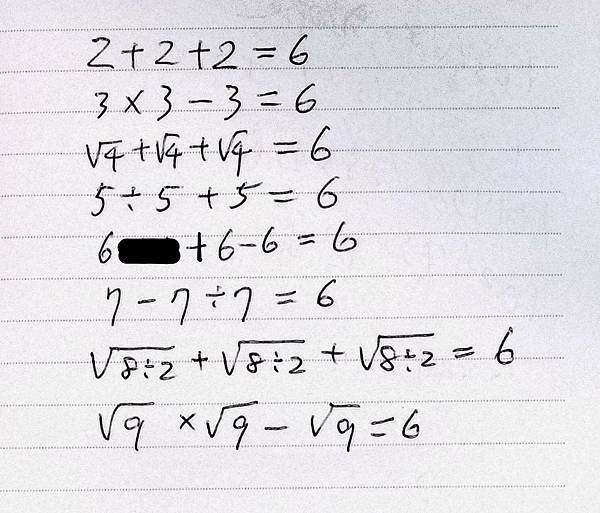 2+2+2=6
3×3-3=6
√4+√4+√4=6
5÷5+5=6
6 +6-6=6
7-7÷7=6
√8÷2+√8÷2+√8÷2=6
√9×√9-√9=6